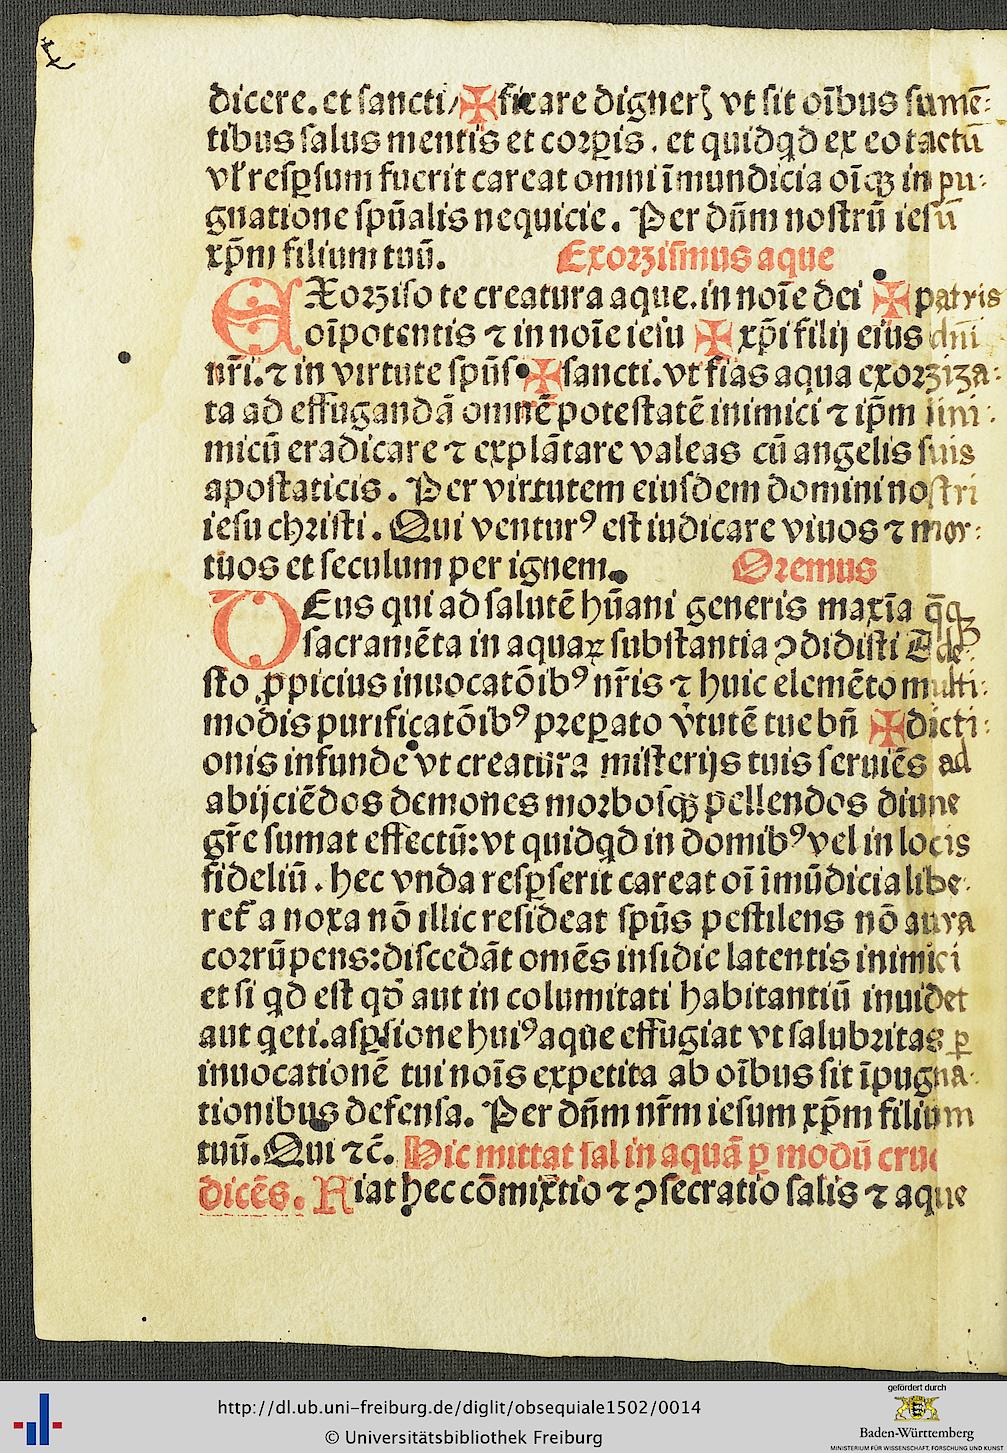 dicere. et sancti/ ✠ ficare dignerꝫ vt sit oībus sumē-
tibus salus mentis et corꝑis. et quidqd ex eo tactū
vl' resꝑsum fuerit careat omni īmundicia oīqꝫ in pu-
gnatione spūalis nequicie. Per dn̄m nostrū iesū
xp̄m filium tuū. Exorzismus aque
EXorziso te creatura aque. in noīe dei ✠ patris
oīpotentis ⁊ in noīe iesu ✠ xp̄i filij eius dn̄i
nr̄i. ⁊ in virtute spūs ✠ sancti. vt fias aqua exorziza-
ta ad effugandā omnē potestatē inimici ⁊ ip̄m inni-
micū eradicare ⁊ explātare valeas cū angelis suis
apostaticis. Per virtutem eiusdem domini nostri
iesu christi. Qui venturꝰ est iudicare viuos ⁊ mor-
tuos et seculum per ignem. Oremus
DEus qui ad salutē hūani generis maxīa q̄qꝫ
sacramēta in aquaꝝ substantia ꝯdidisti Ade-
sto ꝓpicius inuocatōibꝰ nr̄is ⁊ huic elemēto multi-
modis purificatōibꝰ preꝑato v̓tutē tue bn̄ ✠ dicti-
onis infunde vt creatura misterijs tuis seruiēs ad
abijciēdos demones morbosqꝫ pellendos diune
gr̄e sumat effectū: vt quidqd in domibꝰ vel in locis
fideliū. hec vnda resꝑserit careat oī īmūdicia libe-
ret̓ a noxa nō illic resideat spūs pestilens nō aura
corrūpens: discedāt omēs insidie latentis inimici
et si qd est qd̄ aut in columitati habitantiū inuidet
aut qeti. asꝑsione huiꝰ aque effugiat vt salubritas ꝑ
inuocationē tui noīs expetita ab oībus sit īpugna-
tionibus defensa. Per dn̄m nr̄m iesum xp̄m filium
tuū. Qui ⁊c̄. Hic mittat sal in aquā ꝑ modū cruc
dicēs. Fiat hec cōmixtio ⁊ ꝯsecratio salis ⁊ aque
http://dl.ub.uni-freiburg.de/diglit/obsequiale1502/0014
© Universitätsbibliothek Freiburg
gefördert durch
Baden-Württemberg
MINISTERIUM FÜR WISSENSCHAFT, FORSCHUNG UND KUNST